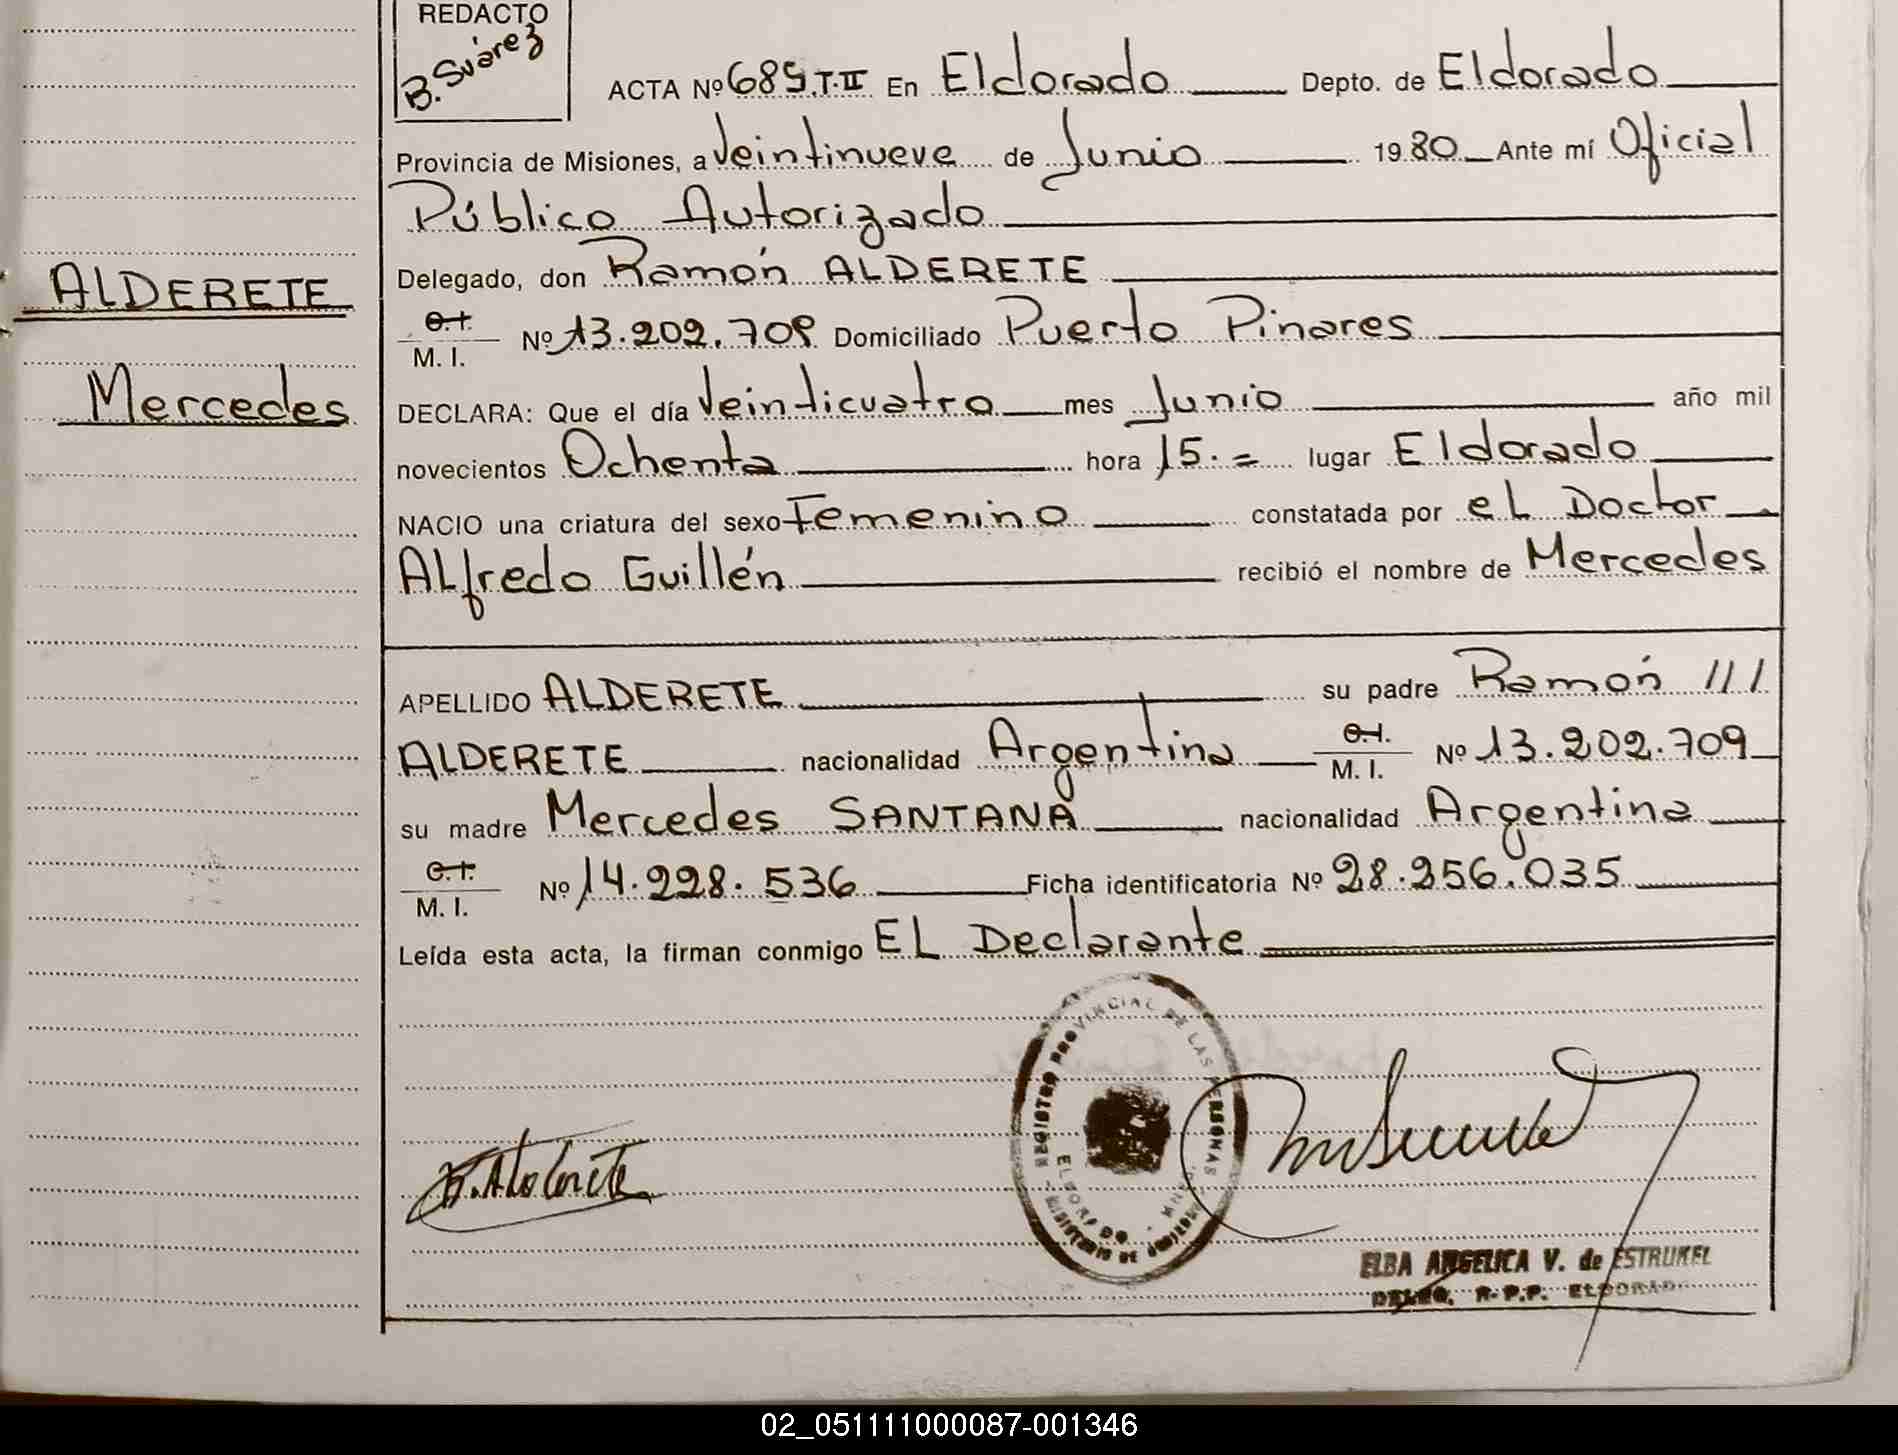 REDACTO
B. Suárez
ACTA Nº 685 T.II En Eldorado Depto. de Eldorado
Provincia de Misiones, a Veintinueve de Junio 1980 Ante mí Oficial
Público Autorizado
Delegado, don Ramón ALDERETE
ALDERETE
C.I.
M. I. Nº 13.202.709 Domiciliado Puerto Pinares
Mercedes
DECLARA: Que el día Veinticuatro mes Junio año mil
novecientos Ochenta hora 15.= lugar Eldorado
NACIO una criatura del sexo Femenino constatada por eL Doctor
ALfredo Guillén recibió el nombre de Mercedes
APELLIDO ALDERETE su padre Ramón ///
ALDERETE nacionalidad Argentina C.I. M. I. Nº 13.202.709
su madre Mercedes SANTANA nacionalidad Argentina
C.I.
M. I. Nº 14.228.536 Ficha identificatoria Nº 28.256.035
Leída esta acta, la firman conmigo EL Declarante
REGISTRO PROVINCIAL DE LAS PERSONAS
ELDORADO
ELBA ANGELICA V. de ESTRUKEL
DELEG. R.P.P. ELDORADO
02_051111000087-001346